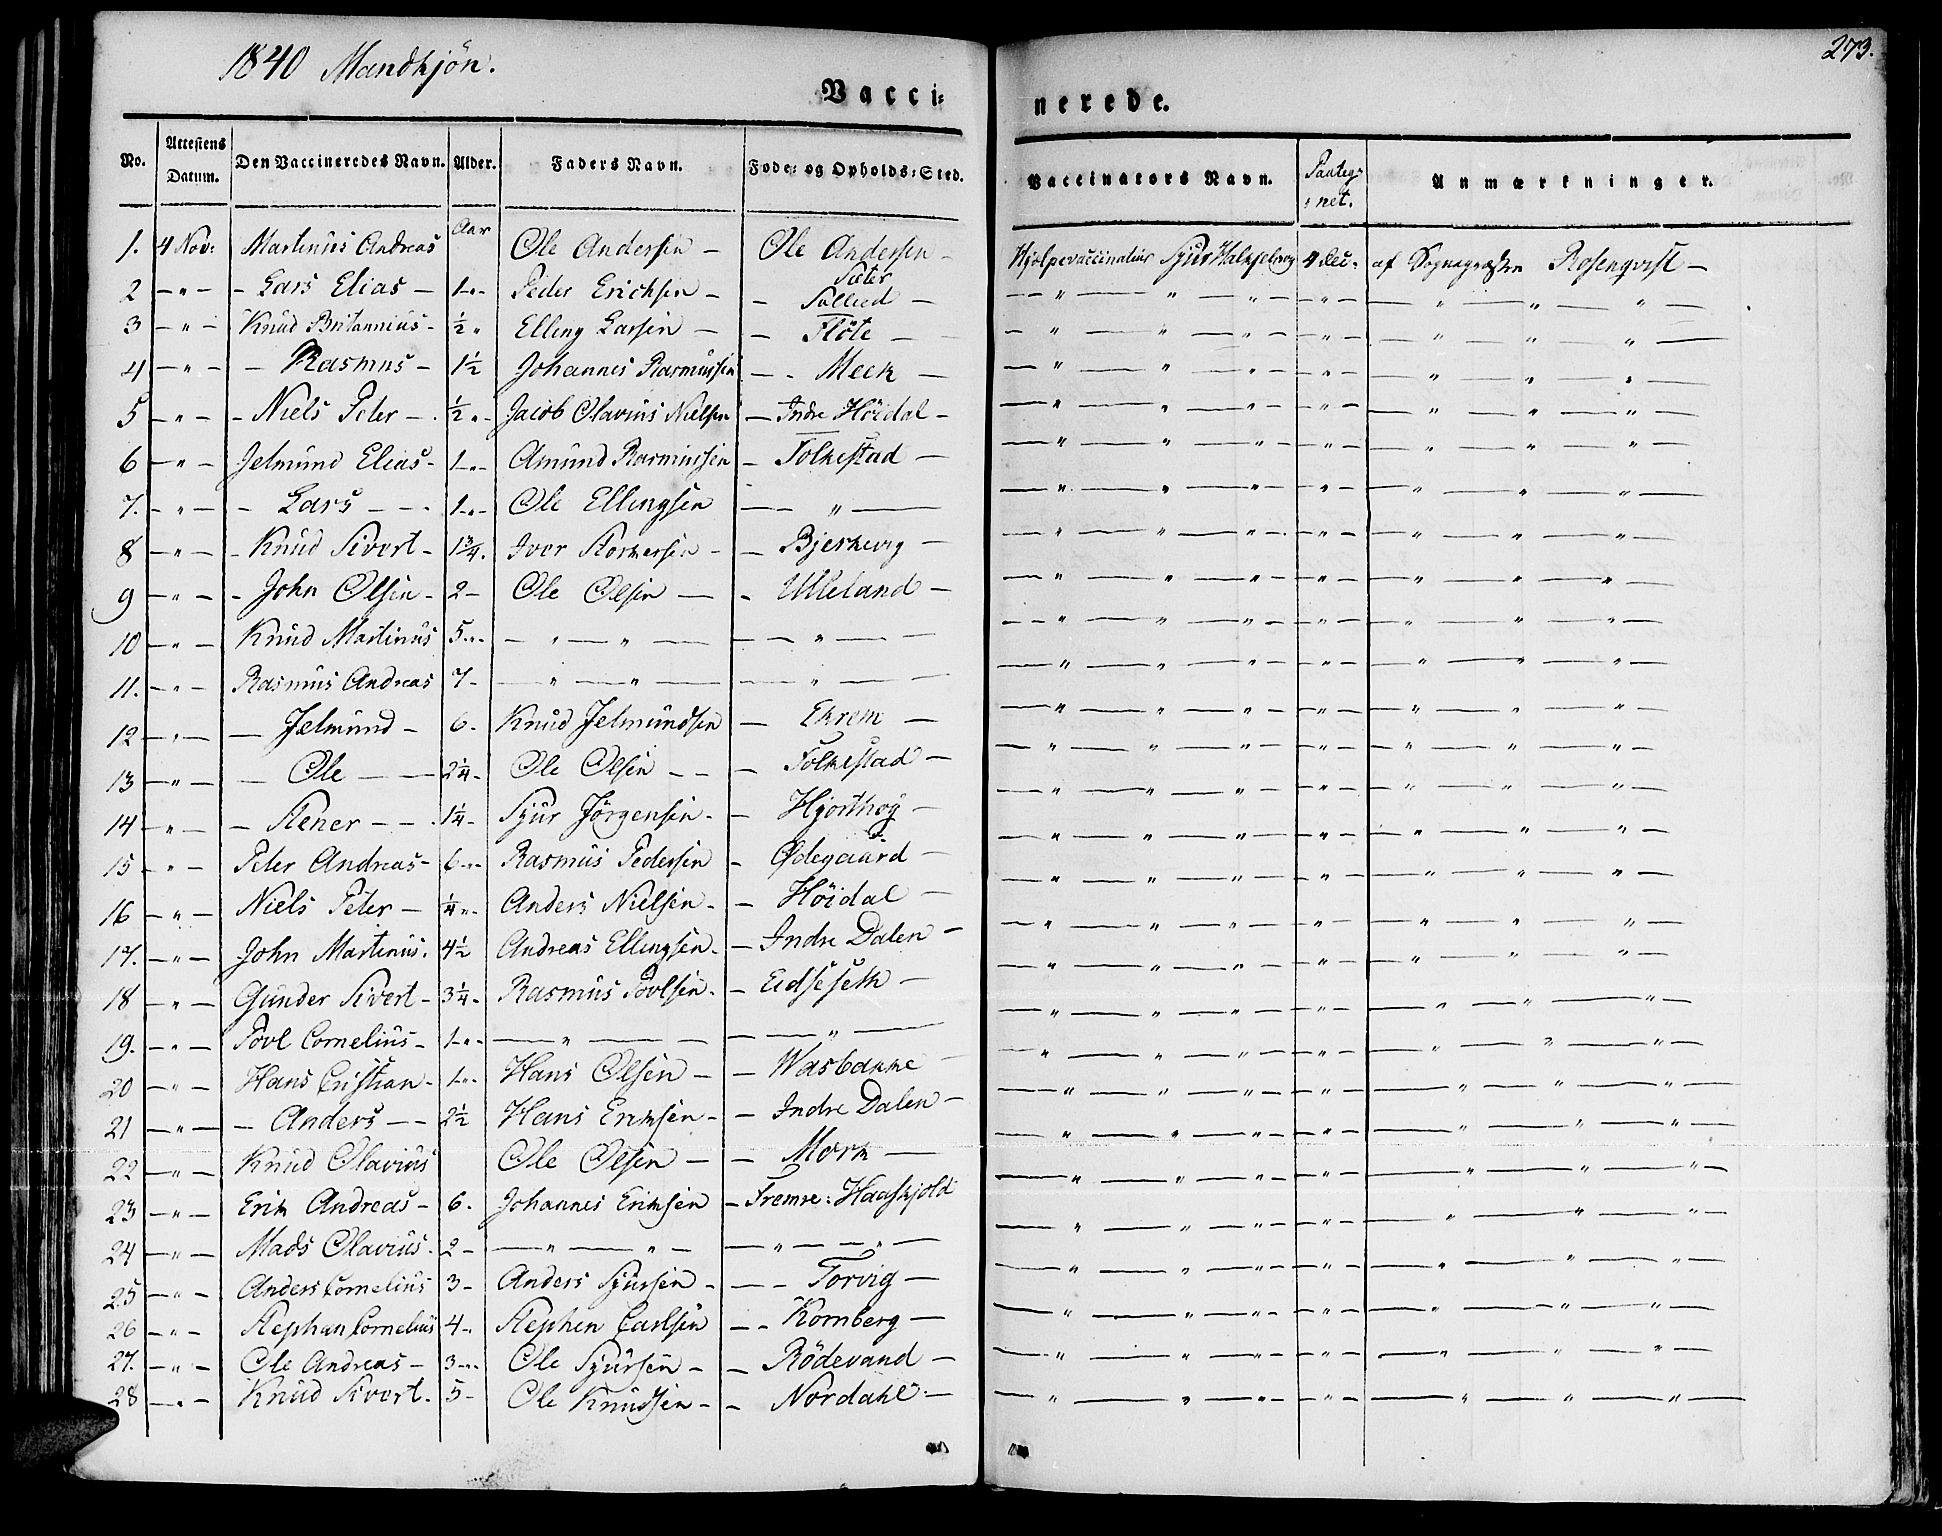 1840 Mandkjön.
273.
Vacci=
nerede.
No. Attestens Datum. Den Vaccineredes Navn. Alder. Faders Navn. Føde= og Opholds=Sted. Vaccinators Navn. Paateg= net. Anmærkninger.
Aar
1. 4 Nov: Martinus Andreas Ole Andersen - Ole Andersen - Hjelpevaccinatør Sjur 4 Dec. af Sognepræsten Rosenqvist -
Sæter
2 - " - - Lars Elias - 1-"- Peder Ericksen - - -
3 - " - Knud Britannius - ½ " Elling Larsen - - Flöte -
4 - " - - Rasmus - 1½ Johannes Rasmussen - - Meek -
5 - " - - Niels Peter - ½ " - Jacob Olavius Nielsen - Indre Höidal -
6 - " - Jelmund Elias - 1-"- Amund Rasmussen - Folkestad -
7. - " - - Lars - - 1-"- Ole Ellingsen - - " -
8 - " - - Knud Sivert - 1¾. Iver Storkersen - - Bjerkevig -
9 - " - - John Olsen - 2 - Ole Olsen - - Ulleland -
10 - " - Knud Martinus 5-"- - " - " - - - " - -
11. - " - Rasmus Andreas 7 - - " - " - - " -
12 - " - - Jelmund - 6 - Knud Jelmundsen - Ekrem -
13 - " - - Ole - - 2¼ - Ole Olsen - - - Folkestad -
14 - " - - Stener - - 1¼ - Sjur Jörgensen - - Hjorthoy -
15 - " - Peter Andreas - 6-"- Rasmus Pedersen - Ødegaard -
16 - " - Niels Peter - ¼ "- Anders Nielsen - - Höidal -
17. - " - John Martinus. 4½ Andreas Ellingsen - - Indre Dalen -
18 - " - Gunder Sivert - 3¼ - Rasmus Povlsen - - Eidseseth -
19. - " - Povl Cornelius - 1-"- - " - - - - - " -
20 - " - Hans Cristian - 1-"- Hans Olsen - - Wasbakke -
21 - " - - Anders - - 2½ Hans Eriksen - - Indre Dalen -
22 - " - Knud Olavius Ole Olsen - - Mork -
23 - " - Erik Andreas - 6 - Johannes Eriksen - Fremre: Haaskjold
24 - " - Mads Olavius - 2 - - " - " - - " - - " -
25 - " - Anders Cornelius 3 - Anders Sjursen - - - Torvig -
26 - " - Stephan Cornelius 4 - Stephen Carlsen - - Komberg -
27. - " - Ole Andreas - 3-"- Ole Sjursen - - Rödevand -
28 - " - Knud Sivert - 5 - Ole Knudsen - - Nordahl -